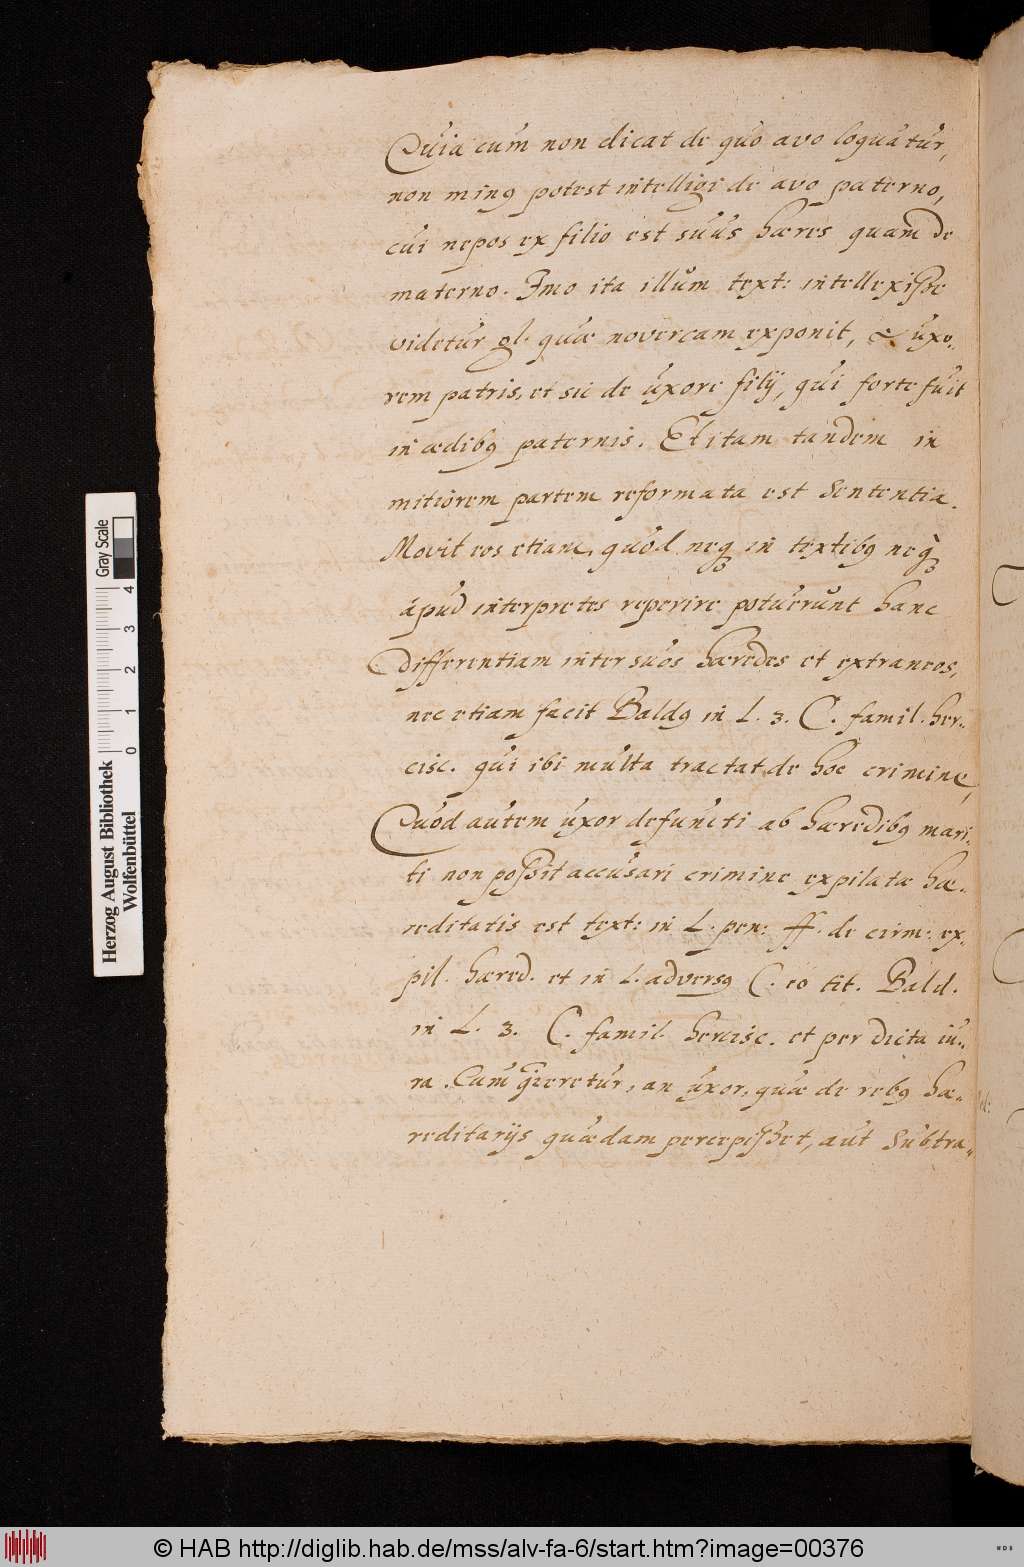 Quia cum non dicat de quo avo loquatur,
non minꝰ potest intelligi de avo paterno,
cui nepos ex filio est suus hæres quam de
materno. Imo ita illum text: intellexiße
videtur gl. quæ novercam exponit, uxo„
rem patris, et sic de uxore filij, qui forte fuit
in ædibꝰ paternis. Et ita tandem in
mitiorem partem reformata est Sententia.
Movit eos etiam, quòd neqꝫ in textibꝰ neqꝫ
apud interpretes reperire potuerunt hanc
Differentiam inter suos hæredes et extraneos,
nec etiam facit Baldꝰ in L. 3. C. famil. her„
cisc. qui ibi multa tractat de hoc crimine,
Quod autem uxor defuncti ab hæredibꝰ mari„
ti non poßit accusari crimine expilatæ hæ„
reditatis est text: in L. pen: ff. de cirm: ex„
pil. hæred. et in l. adversꝰ C. eo tit. Bald.
in L. 3. C. famil. hercisc. et per dicta iu„
ra. Cum quereretur, an uxor, quæ de rebꝰ hæ„
reditarijs quædam percepißet, aut Subtra„
Gray Scale
0 1 2 3 4
Herzog August Bibliothek
Wolfenbüttel
© HAB http://diglib.hab.de/mss/alv-fa-6/start.htm?image=00376